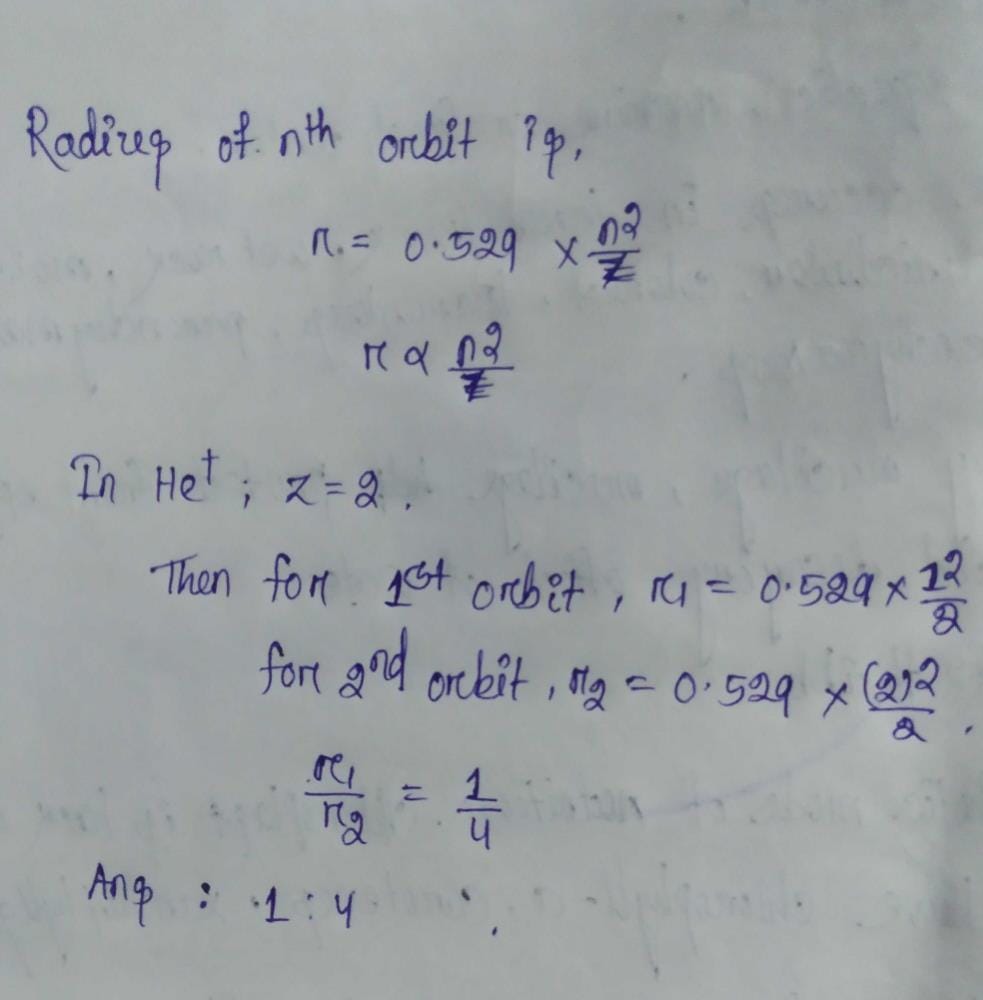 Radius of nth orbit is,
r = 0.529 × n²/Z
r ∝ n²/Z
In He⁺ ; Z = 2.
Then for 1st orbit, r₁ = 0.529 × 1²/2
for 2nd orbit, r₂ = 0.529 × (2)²/2.
r₁/r₂ = 1/4
Ans : 1 : 4.